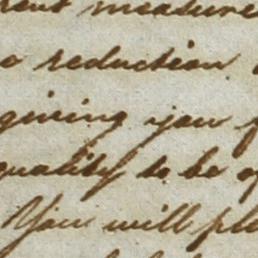 measure
reduction
giving you
quality to be of
You will